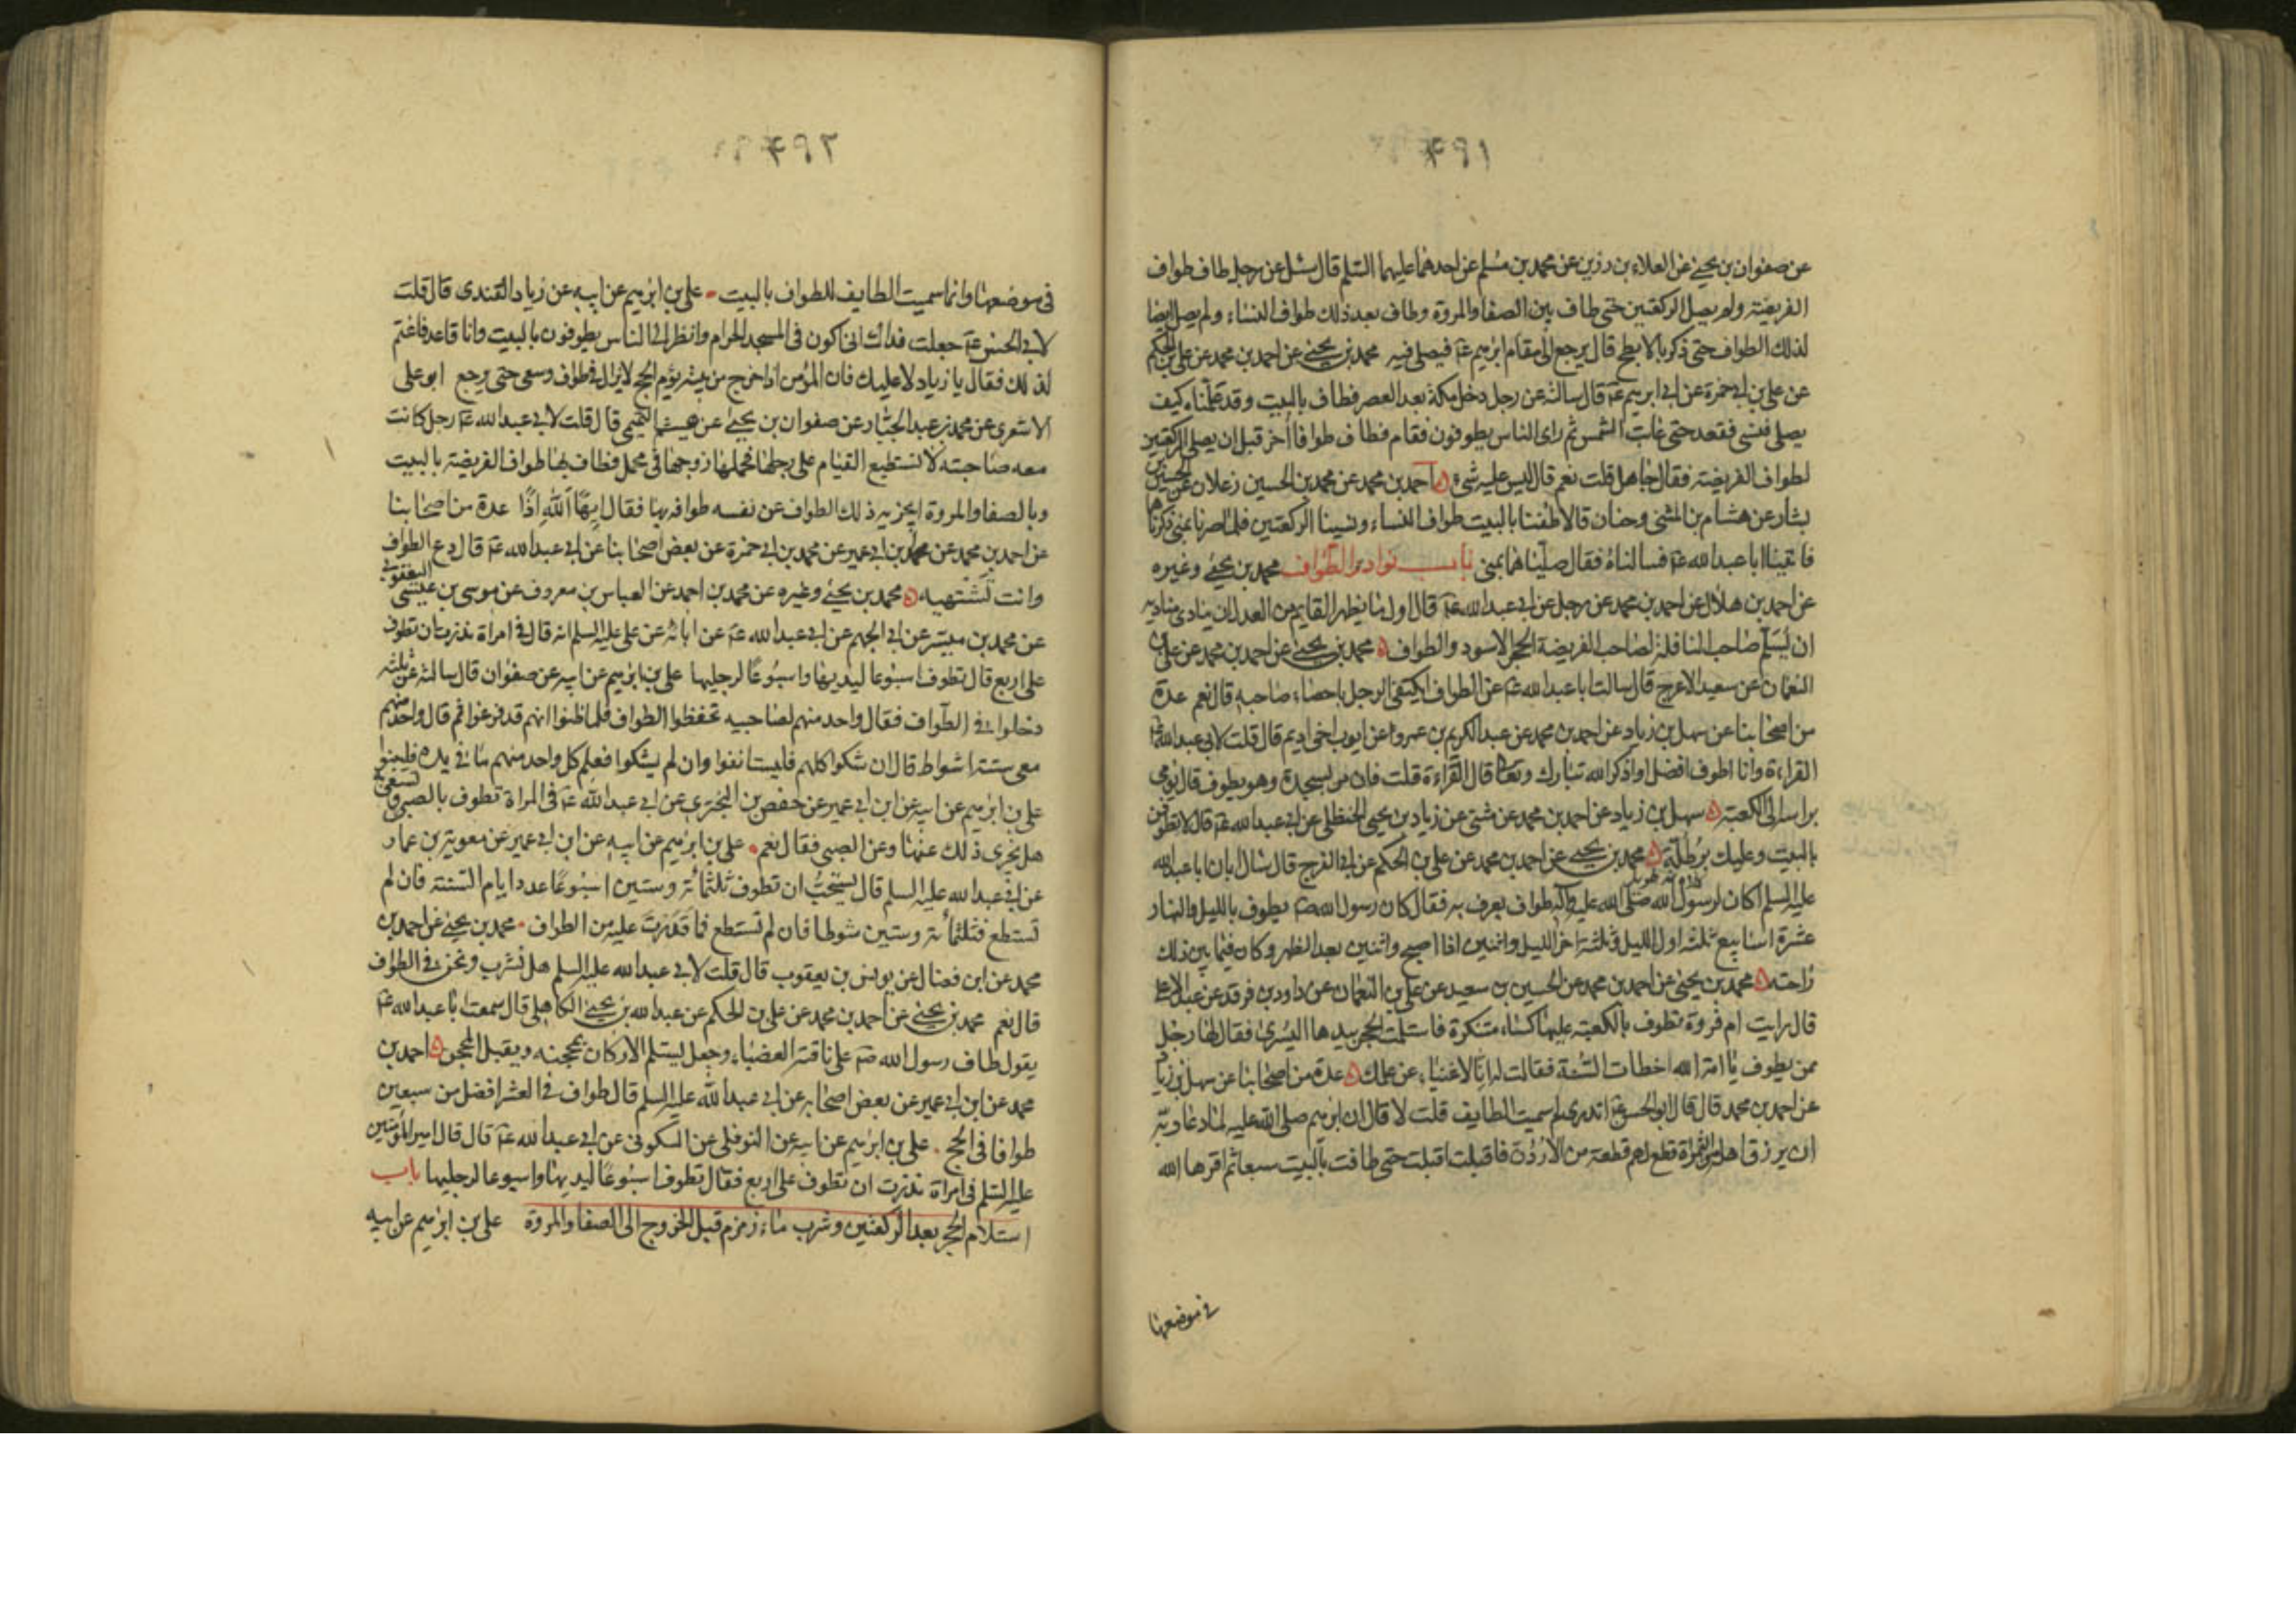 ۴۹۱
عن صفوان بن يحيى عن العلاء بن رزين عن محمد بن مسلم عن احدهما عليهما السلم قال سئل عن رجل طاف طواف
الفريضة ولم يصل الركعتين حتى طاف بين الصفا والمروة وطاف بعد ذلك طواف النساء ولم يصل ايضا
لذلك الطواف حتى ذكر بالابطح قال يرجع الى مقام ابرهيم ع فيصلى فيه محمد بن يحيى عن احمد بن محمد عن على بن الحكم
عن على بن ابى حمزة عن ابى ابرهيم ع قال سالته عن رجل دخل مكة بعد العصر فطاف بالبيت وقد علمناه كيف
يصلى فنسى فقعد حتى غابت الشمس ثم راى الناس يطوفون فقام فطاف طوافا اخر قبل ان يصلى الركعتين
لطواف الفريضة فقال جاهل قلت نعم قال ليس عليه شىء احمد بن محمد عن محمد بن الحسين زعلان عن الحسين بن
بشار عن هشام بن المثنى وحنان قالا طفنا بالبيت طواف النساء ونسينا الركعتين فلما صرنا بمنى ذكرناها
فاتينا ابا عبد الله ع فسالناه فقال صلياهما بمنى باب نوادر الطواف محمد بن يحيى وغيره
عن احمد بن هلال عن احمد بن محمد عن رجل عن ابى عبد الله ع قال اول ما يظهر القايم من العدل ان ينادى مناديه
ان يسلم صاحب النافلة لصاحب الفريضة الحجر الاسود والطواف محمد بن يحيى عن احمد بن محمد عن على بن
النعمان عن سعيد الاعرج قال سالت ابا عبد الله ع عن الطواف ايكتفى الرجل باحصاء صاحبه قال نعم عدة
من اصحابنا عن سهل بن زياد عن احمد بن محمد عن عبد الكريم بن عمرو عن ايوب اخى اديم قال قلت لابى عبد الله ع
القراءة وانا اطوف افضل او اذكر الله تبارك وتعالى قال القراءة قلت فان مر بسجدة وهو يطوف قال يومى
براسه الى الكعبة سهل بن زياد عن احمد بن محمد عن مثنى عن زياد بن يحيى الحنظلى عن ابى عبد الله ع قال لا تطوفن
بالبيت وعليك برطلة محمد بن يحيى عن احمد بن محمد عن على بن الحكم عن ابى الفرج قال سال ابان ابا عبد الله
عليه السلم اكان لرسول الله صلى الله عليه واله طواف يعرف به فقال كان رسول الله ص يطوف بالليل والنهار
عشرة اسابيع ثلثة اول الليل وثلثة اخر الليل واثنين اذا اصبح واثنين بعد الظهر وكان فيما بين ذلك
راحته محمد بن يحيى عن احمد بن محمد عن الحسين بن سعيد عن على بن النعمان عن داود بن فرقد عن عبد الاعلى
قال رايت ام فروة تطوف بالكعبة عليها كساء متنكرة فاستلمت الحجر بيدها اليسرى فقال لها رجل
ممن يطوف يا امة الله اخطات السنة فقالت له انا لاغنياء عن علمك عدة من اصحابنا عن سهل بن زياد
عن احمد بن محمد قال قال ابو الحسن ع اتدرى لم سميت الطايف قلت لا قال ان ابرهيم صلى الله عليه لما دعا ربه
ان يرزق اهله من الثمراة قطع لهم قطعة من الاردن فاقبلت اقبلت حتى طافت بالبيت سبعا ثم اقرها الله
فى موضعها
۴۹۲
فى موضعها وانما سميت الطايف للطواف بالبيت على بن ابرهيم عن ابيه عن زياد القندى قال قلت
لابى الحسن ع جعلت فداك انى اكون فى المسجد الحرام وانظر الى الناس يطوفون بالبيت وانا قاعد فاغتم
لذلك فقال يا زياد لا عليك فان المؤمن اذا خرج من بيته يؤم الحج لا يزال فى طواف وسعى حتى يرجع ابو على
الاشعرى عن محمد بن عبد الجبار عن صفوان بن يحيى عن هيثم التميمى قال قلت لابى عبد الله ع رجل كانت
معه صاحبته لا تستطيع القيام على رجلها فحملها زوجها فى محمل فطاف بها طواف الفريضة بالبيت
وبالصفا والمروة ايجزيه ذلك الطواف عن نفسه طوافه بها فقال ايها الله اذا عدة من اصحابنا
عن احمد بن محمد عن محمد بن ابى عمير عن محمد بن ابى حمزة عن بعض اصحابنا عن ابى عبد الله ع قال دع الطواف
وانت تشتهيه محمد بن يحيى وغيره عن محمد بن احمد عن العباس بن معروف عن موسى بن عيسى اليعقوبى
عن محمد بن ميسر عن ابى الجهم عن ابى عبد الله ع عن ابائه عن على عليه السلم انه قال فى امراة نذرت ان تطوف
على اربع قال تطوف اسبوعا ليديها واسبوعا لرجليها على بن ابرهيم عن ابيه عن صفوان قال سالته عن ثلثة
دخلوا فى الطواف فقال واحد منهم لصاحبيه تحفظوا الطواف فلما ظنوا انهم قد فرغوا ثم قال واحد منهم
معى ستة اشواط قال ان شكوا كلهم فليستانفوا وان لم يشكوا فعلم كل واحد منهم ما فى يده فليبنوا
على بن ابرهيم عن ابيه عن ابن ابى عمير عن حفص بن البخترى عن ابى عبد الله ع فى المراة تطوف بالصبى وتسعى به
هل يجزى ذلك عنها وعن الصبى فقال نعم على بن ابرهيم عن ابيه عن ابن ابى عمير عن معوية بن عمار
عن ابى عبد الله عليه السلم قال يستحب ان تطوف ثلثمائة وستين اسبوعا عدد ايام السنة فان لم
تستطع فثلثمائة وستين شوطا فان لم تستطع فما قدرت عليه من الطواف محمد بن يحيى عن احمد بن
محمد عن ابن فضال عن يونس بن يعقوب قال قلت لابى عبد الله عليه السلم هل نشرب ونحن فى الطواف
قال نعم محمد بن يحيى عن احمد بن محمد عن على بن الحكم عن عبد الله بن يحيى الكاهلى قال سمعت ابا عبد الله ع
يقول طاف رسول الله ص على ناقته العضباء وجعل يستلم الاركان بمحجنه ويقبل المحجن احمد بن
محمد عن ابن ابى عمير عن بعض اصحابه عن ابى عبد الله عليه السلم قال طواف فى العشر افضل من سبعين
طوافا فى الحج على بن ابرهيم عن ابيه عن النوفلى عن السكونى عن ابى عبد الله ع قال قال امير المؤمنين
عليه السلم فى امراة نذرت ان تطوف على اربع فقال تطوف اسبوعا ليديها واسبوعا لرجليها باب
استلام الحجر بعد الركعتين وشرب ماء زمزم قبل الخروج الى الصفا والمروة على بن ابرهيم عن ابيه